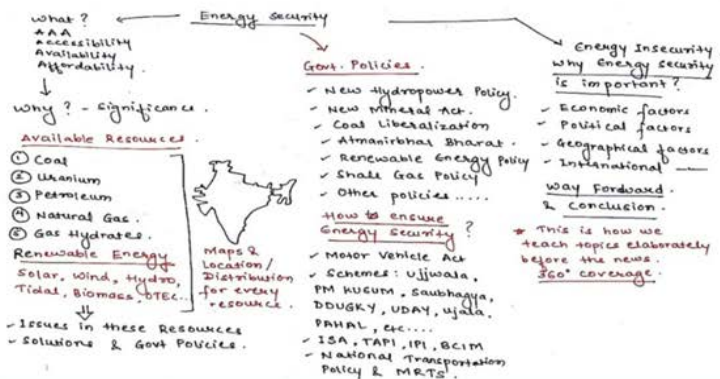 Energy security
what?
AAA
Accessibility
Availability
Affordability.
Why? - Significance.
Available Resources.
① Coal
② Uranium
③ Petroleum
④ Natural Gas.
⑤ Gas Hydrates.
Renewable Energy
Solar, Wind, Hydro,
Tidal, Biomass, OTEC...
- Issues in these Resources
- Solutions & Govt Policies.
Maps &
Location/
Distribution
for every
resource.
Govt. Policies.
- New Hydropower Policy.
- New Mineral Act.
- Coal Liberalization
- Atmanirbhar Bharat.
- Renewable Energy Policy
- Shale Gas Policy
- Other policies.....
How to ensure
Energy Security?
- Motor Vehicle Act
- Schemes: Ujjwala,
PM KUSUM, Saubhagya,
DDUGKY, UDAY, ujala,
PAHAL, etc....
- ISA, TAPI, IPI, BCIM
- National Transportation
Policy & MRTS.
Energy Insecurity
Why Energy security
is important?
- Economic factors
- Political factors
- Geographical factors
- International
Way Forward
& Conclusion.
* This is how we
teach topics elaborately
before the news.
360° coverage.